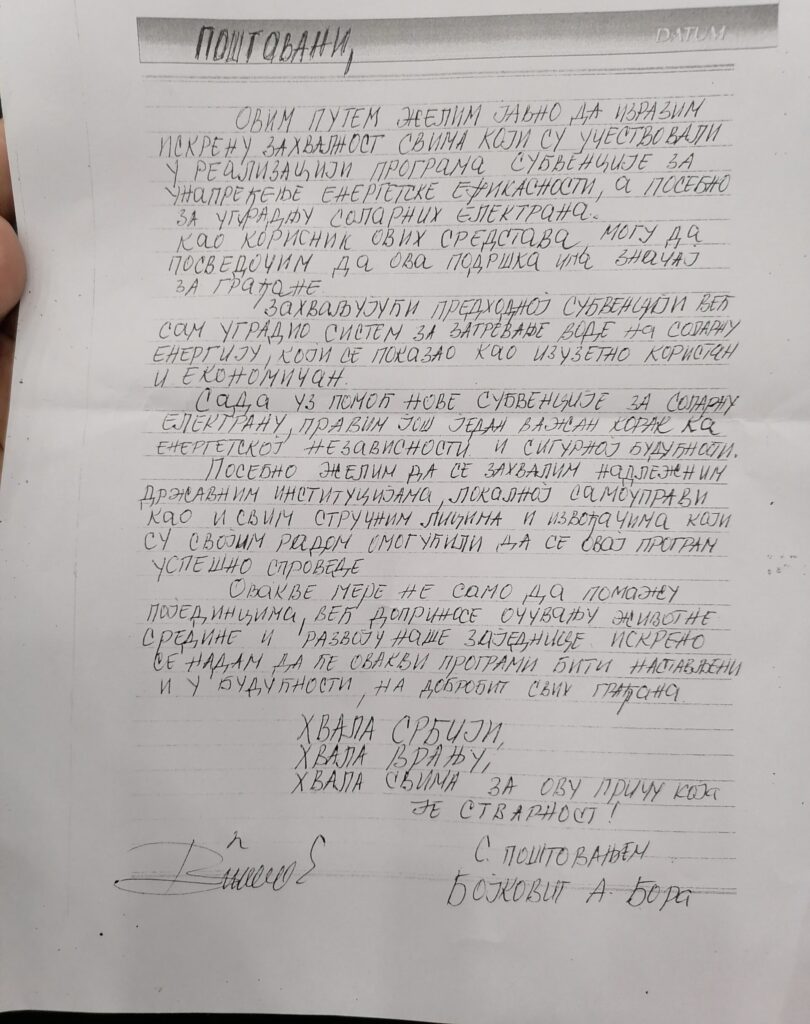 DATUM
ПОШТОВАНИ,
ОВИМ ПУТЕМ ЖЕЛИМ ЈАВНО ДА ИЗРАЗИМ
ИСКРЕНУ ЗАХВАЛНОСТ СВИМА КОЈИ СУ УЧЕСТВОВАЛИ
У РЕАЛИЗАЦИЈИ ПРОГРАМА СУБВЕНЦИЈЕ ЗА
УНАПРЕЂЕЊЕ ЕНЕРГЕТСКЕ ЕФИКАСНОСТИ, А ПОСЕБНО
ЗА УГРАДЊУ СОЛАРНИХ ЕЛЕКТРАНА.
КАО КОРИСНИК ОВИХ СРЕДСТАВА, МОГУ ДА
ПОСВЕДОЧИМ ДА ОВА ПОДРШКА ИМА ЗНАЧАЈ
ЗА ГРАЂАНЕ.
ЗАХВАЉУЈУЋИ ПРЕДХОДНОЈ СУБВЕНЦИЈИ ВЕЋ
САМ УГРАДИО СИСТЕМ ЗА ЗАГРЕВАЊЕ ВОДЕ НА СОЛАРНУ
ЕНЕРГИЈУ, КОЈИ СЕ ПОКАЗАО КАО ИЗУЗЕТНО КОРИСТАН
И ЕКОНОМИЧАН.
САДА УЗ ПОМОЋ НОВЕ СУБВЕНЦИЈЕ ЗА СОЛАРНУ
ЕЛЕКТРАНУ, ПРАВИМ ЈОШ ЈЕДАН ВАЖАН КОРАК КА
ЕНЕРГЕТСКОЈ НЕЗАВИСНОСТИ И СИГУРНОЈ БУДУЋНОСТИ.
ПОСЕБНО ЖЕЛИМ ДА СЕ ЗАХВАЛИМ НАДЛЕЖНИМ
ДРЖАВНИМ ИНСТИТУЦИЈАМА, ЛОКАЛНОЈ САМОУПРАВИ
КАО И СВИМ СТРУЧНИМ ЛИЦИМА И ИЗВОЂАЧИМА КОЈИ
СУ СВОЈИМ РАДОМ ОМОГУЋИЛИ ДА СЕ ОВАЈ ПРОГРАМ
УСПЕШНО СПРОВЕДЕ
ОВАКВЕ МЕРЕ НЕ САМО ДА ПОМАЖУ
ПОЈЕДИНЦИМА, ВЕЋ ДОПРИНОСЕ ОЧУВАЊУ ЖИВОТНЕ
СРЕДИНЕ И РАЗВОЈУ НАШЕ ЗАЈЕДНИЦЕ. ИСКРЕНО
СЕ НАДАМ ДА ЋЕ ОВАКВИ ПРОГРАМИ БИТИ НАСТАВЉЕНИ
И У БУДУЋНОСТИ, НА ДОБРОБИТ СВИХ ГРАЂАНА
ХВАЛА СРБИЈИ,
ХВАЛА ВРАЊУ,
ХВАЛА СВИМА ЗА ОВУ ПРИЧУ КОЈА
ЈЕ СТВАРНОСТ!
С ПОШТОВАЊЕМ
БОЈКОВИЋ А. БОРА